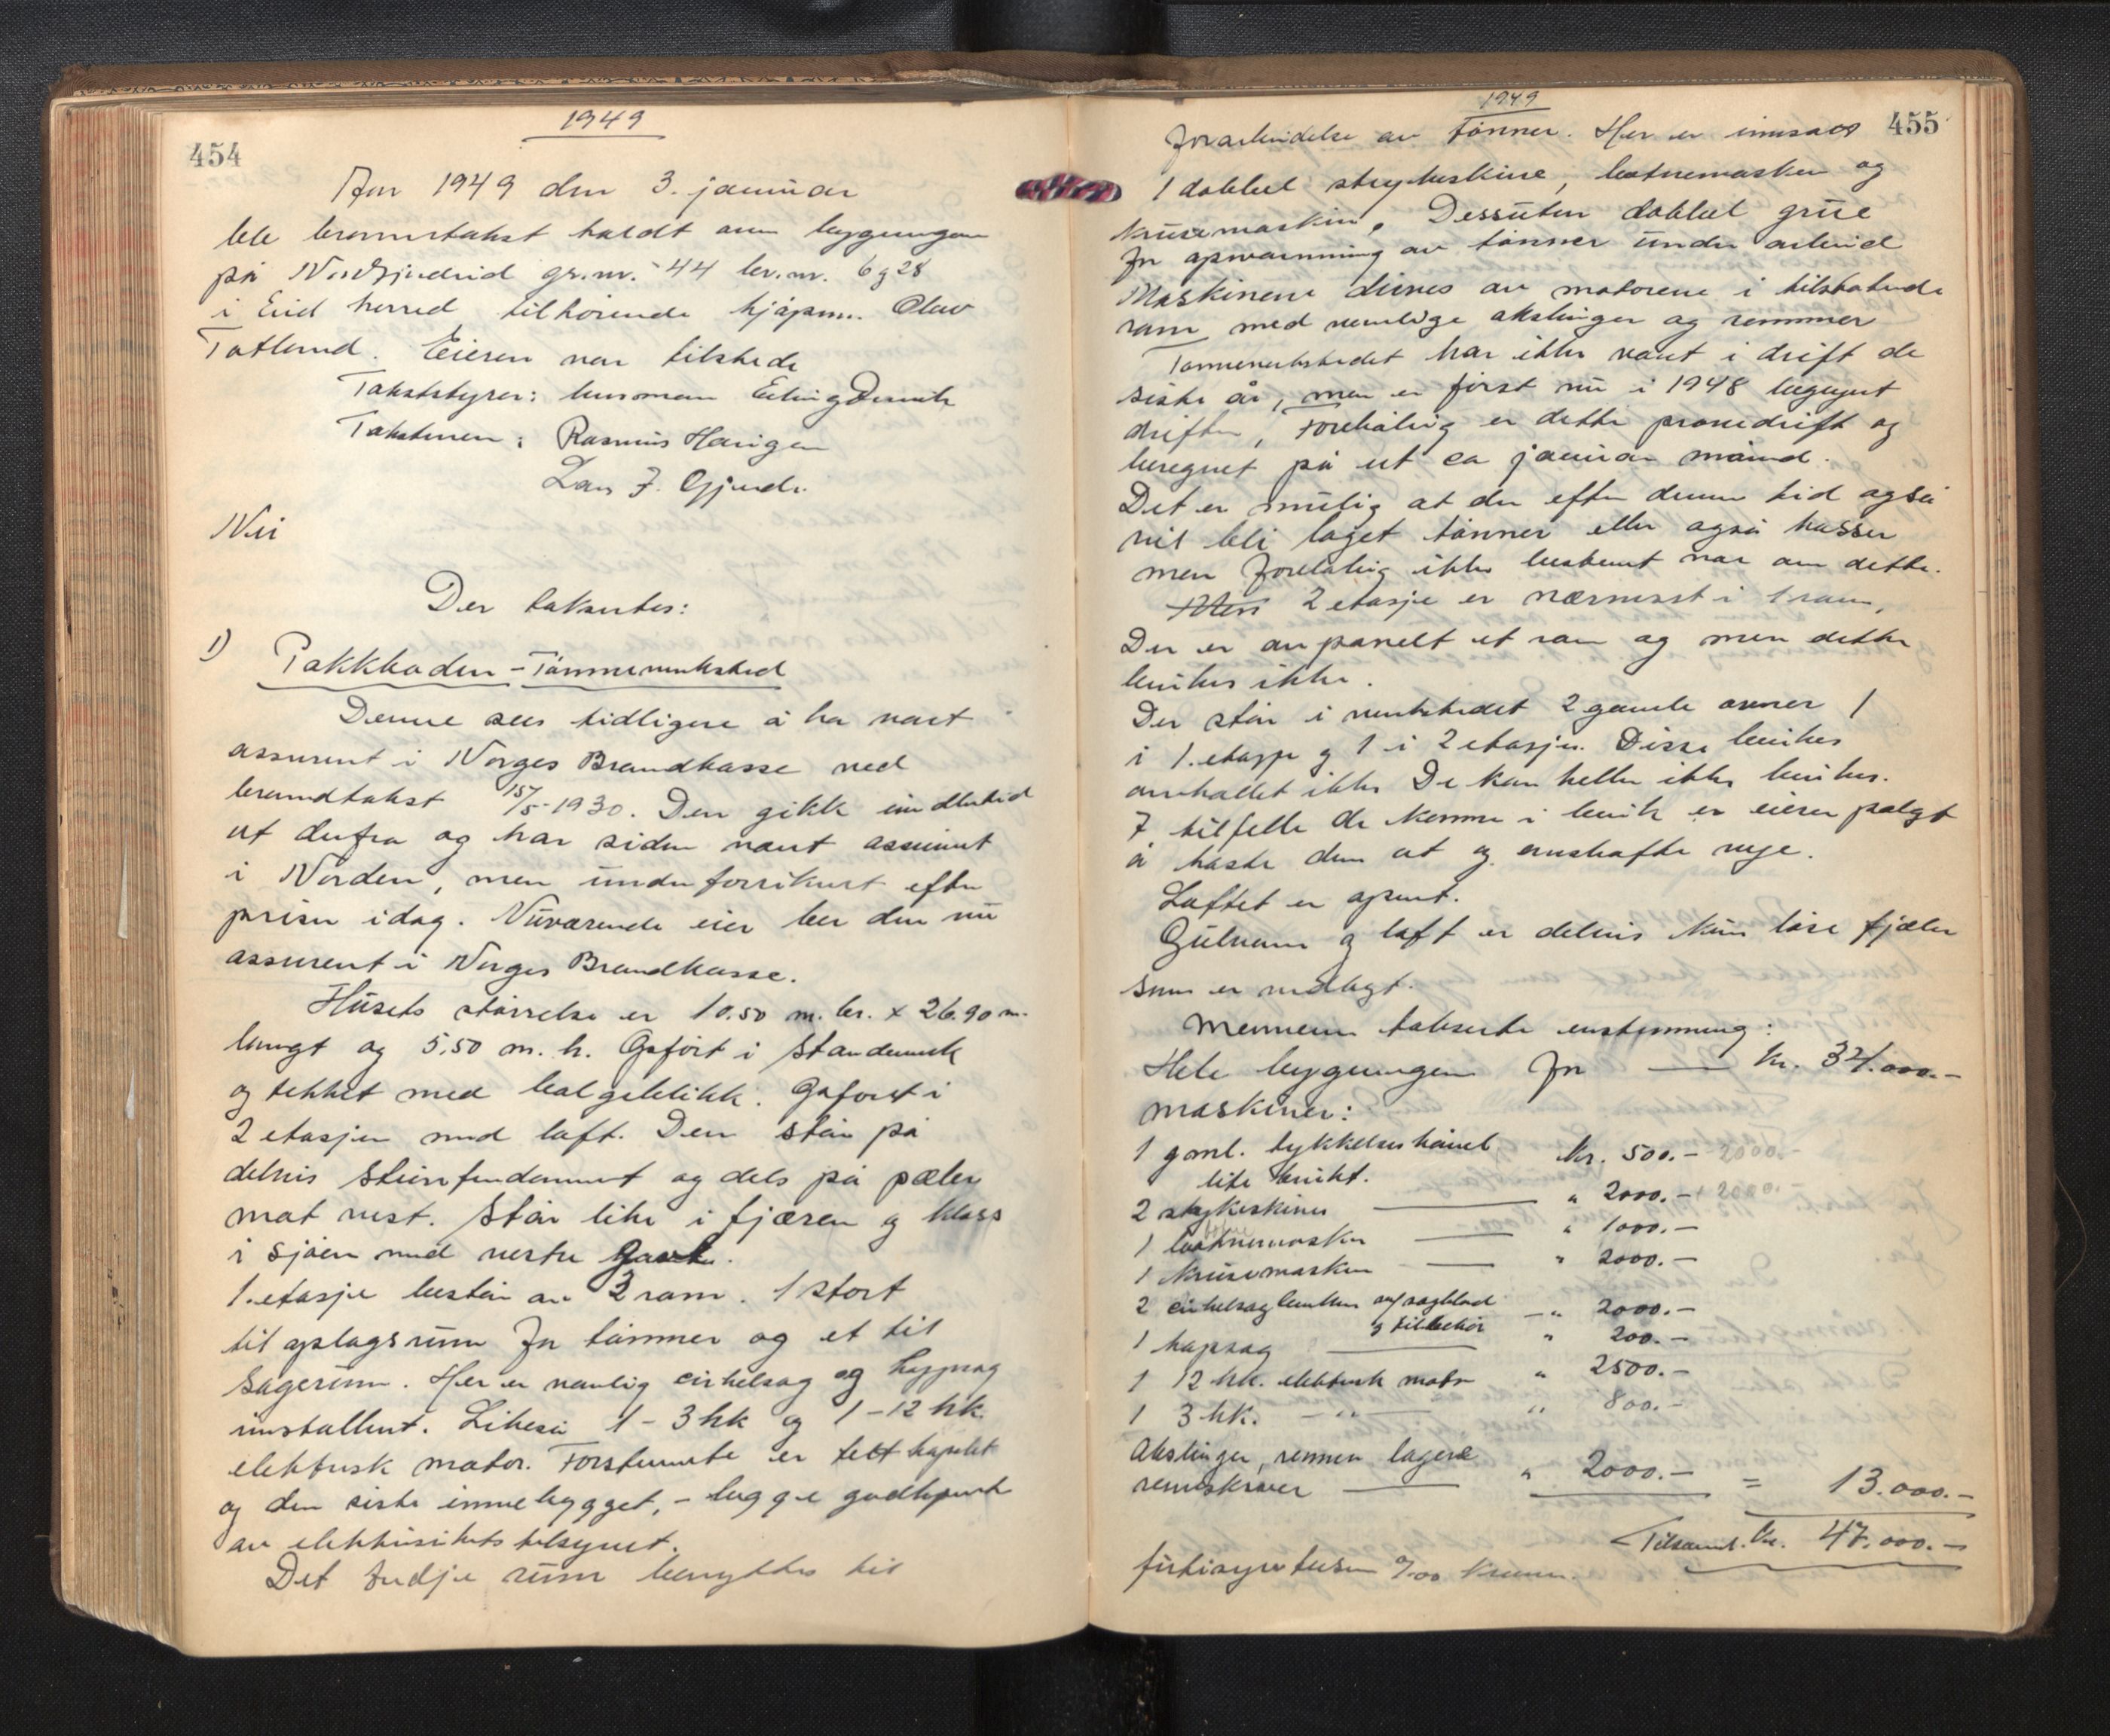 1949
454
Aar 1949 den 3. januar
ble branntakst holdt over bygningen
på Nordfjordeid gr.nr. 44 br.nr. 6 og 28
i Eid herred tilhörende kjöpm. Olav
Totland. Eieren var tilstede
Takststyrer: lensmann
Takstmenn: Rasmus Haugen
Lars J. Gjerde.
Nei
Der takseres:
1) Pakkboden - Tönneverksted
Denne sees tidligere å ha vært
assurert i Norges Brandkasse ved
brandtakst 15/5-1930. Den gikk imidlertid
ut derfra og har siden vært assurert
i Norden, men underforsikret efter
prisen idag. Nuværende eier ber den nu
assurert i Norges Brandkasse.
Husets störrelse er 10.50 m. br. x 26.90 m.
langt og 5,50 m. h. Opfört i standerverk
og tekket med bölgeblikk. Opfört i
2 etasjer med loft. Den står på
delvis steinfundament og dels på pæler
mot vest. Står like i fjæren og kloss
i sjöen med vestre gavl.
1. etasje består av 3 rom. 1 stort
til oplagsrum for tönner og et til
sagerum. Her er nemlig cirkelsag og kappsag
installert. Likeså 1 - 3 hk og 1 - 12 hk.
elektrisk motor. Förstnevnte er tett kapslet
og den siste innebygget, - begge godkjent
av elektrisitetstilsynet.
Det tredje rum benyttes til
1949
455
forarbeidelse av tönner. Her er innsatt
1 dobbel strykeskine, botnemaskin og
krusemaskin. Dessuten dobbel grue
for opvarmning av tönner under arbeid
Maskinene drives av motorene i tilstötende
rom med vanlige akslinger og remmer
Tönneverkstedet har ikke vært i drift de
siste år, men er först nu i 1948 begynt
driften, Forelöbig er dette prövedrift og
beregnet på ut ca januar måned.
Det er mulig at der efter denne tid også
vil bli laget tönner eller også kasser
men forelöbig ikke bestemt noe om dette.
2 etasje er nærmest i 1 rom,
Der er avpanelt et rom og men dette
brukes ikke.
Der står i verkstedet 2 gamle ovner 1
i 1. etasje og 1 i 2 etasje. Disse brukes
overhodet ikke De kan heller ikke brukes.
I tilfelle de kommer i bruk er eieren pålagt
å kaste dem ut og anskaffe nye.
Loftet er åpent.
Gulvene og loft er delvis kun löse fjæler
som er nedlagt.
Mennene takserte enstemmig:
Hele bygningen for — kr. 34.000.-
Maskiner:
1 gml. tykkelseshövel
lite brukt. kr. 500.-
2 strykeskiner — " 2000.-
1 botnemaskin — " 1000.-
1 krusemaskin — " 2000.-
2 cirkelsagbenker m/sagblad
og tilbehör — " 2000.-
1 kapsag — " 200.-
1 12 hk. elektrisk motor " 2500.-
1 3 hk. — " — " 800.-
Akslinger, remmer lagere
remskiver — " 2000.- = 13.000.-
Tilsaml. kr. 47.000.-
förtisyvtusen 0/00 kroner.